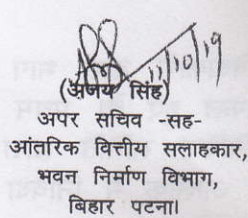 11/10/19
(अजय सिंह)
अपर सचिव -सह-
आंतरिक वित्तीय सलाहकार,
भवन निर्माण विभाग,
बिहार पटना।